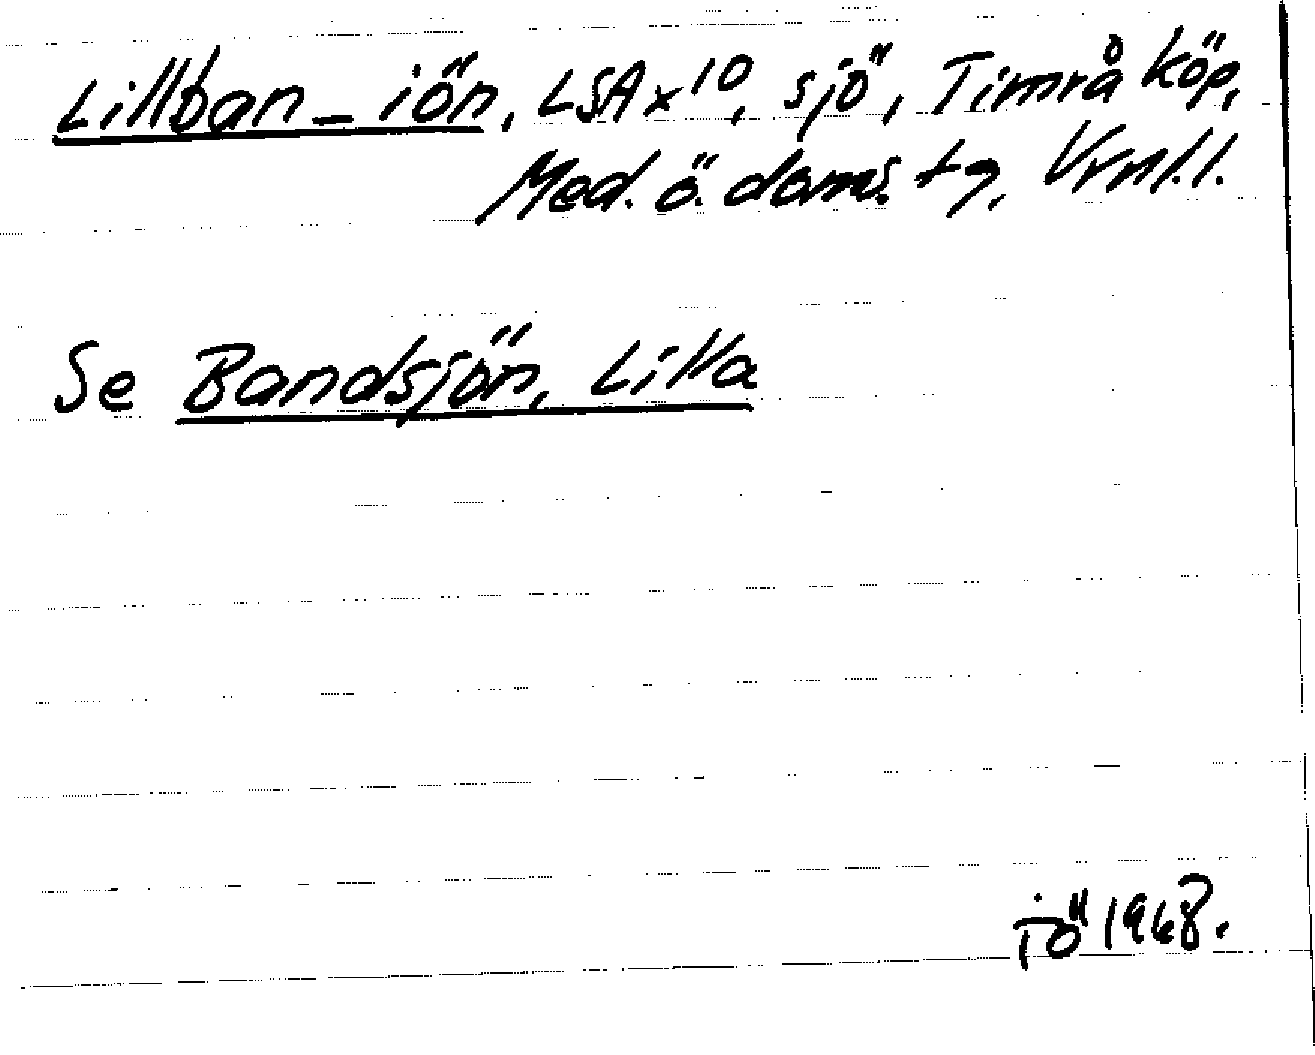 Lillban_iön, LSAx10, sjö, Timrå köp,
Med. ö. doms. tg, Vrnl.l.
Se Bandsjön, Lilla
iö 1968.